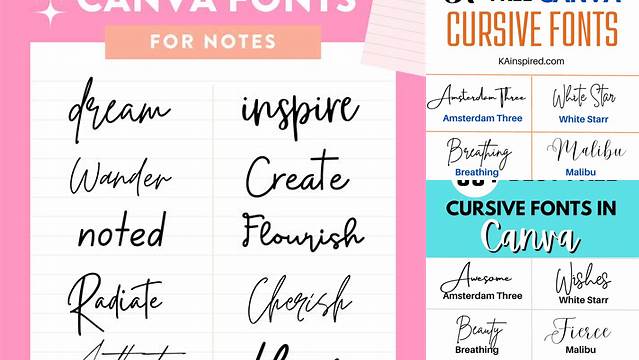 CANVA FONTS
FOR NOTES
dream
inspire
Wander
Create
noted
Flourish
Radiate
Cherish
CANVA
CURSIVE FONTS
KAinspired.com
Amsterdam Three
White Star
Amsterdam Three
White Starr
Breathing
Malibu
Breathing
Malibu
CURSIVE FONTS IN
Canva
Awesome
Wishes
Amsterdam Three
White Starr
Beauty
Fierce
Breathing
Malibu